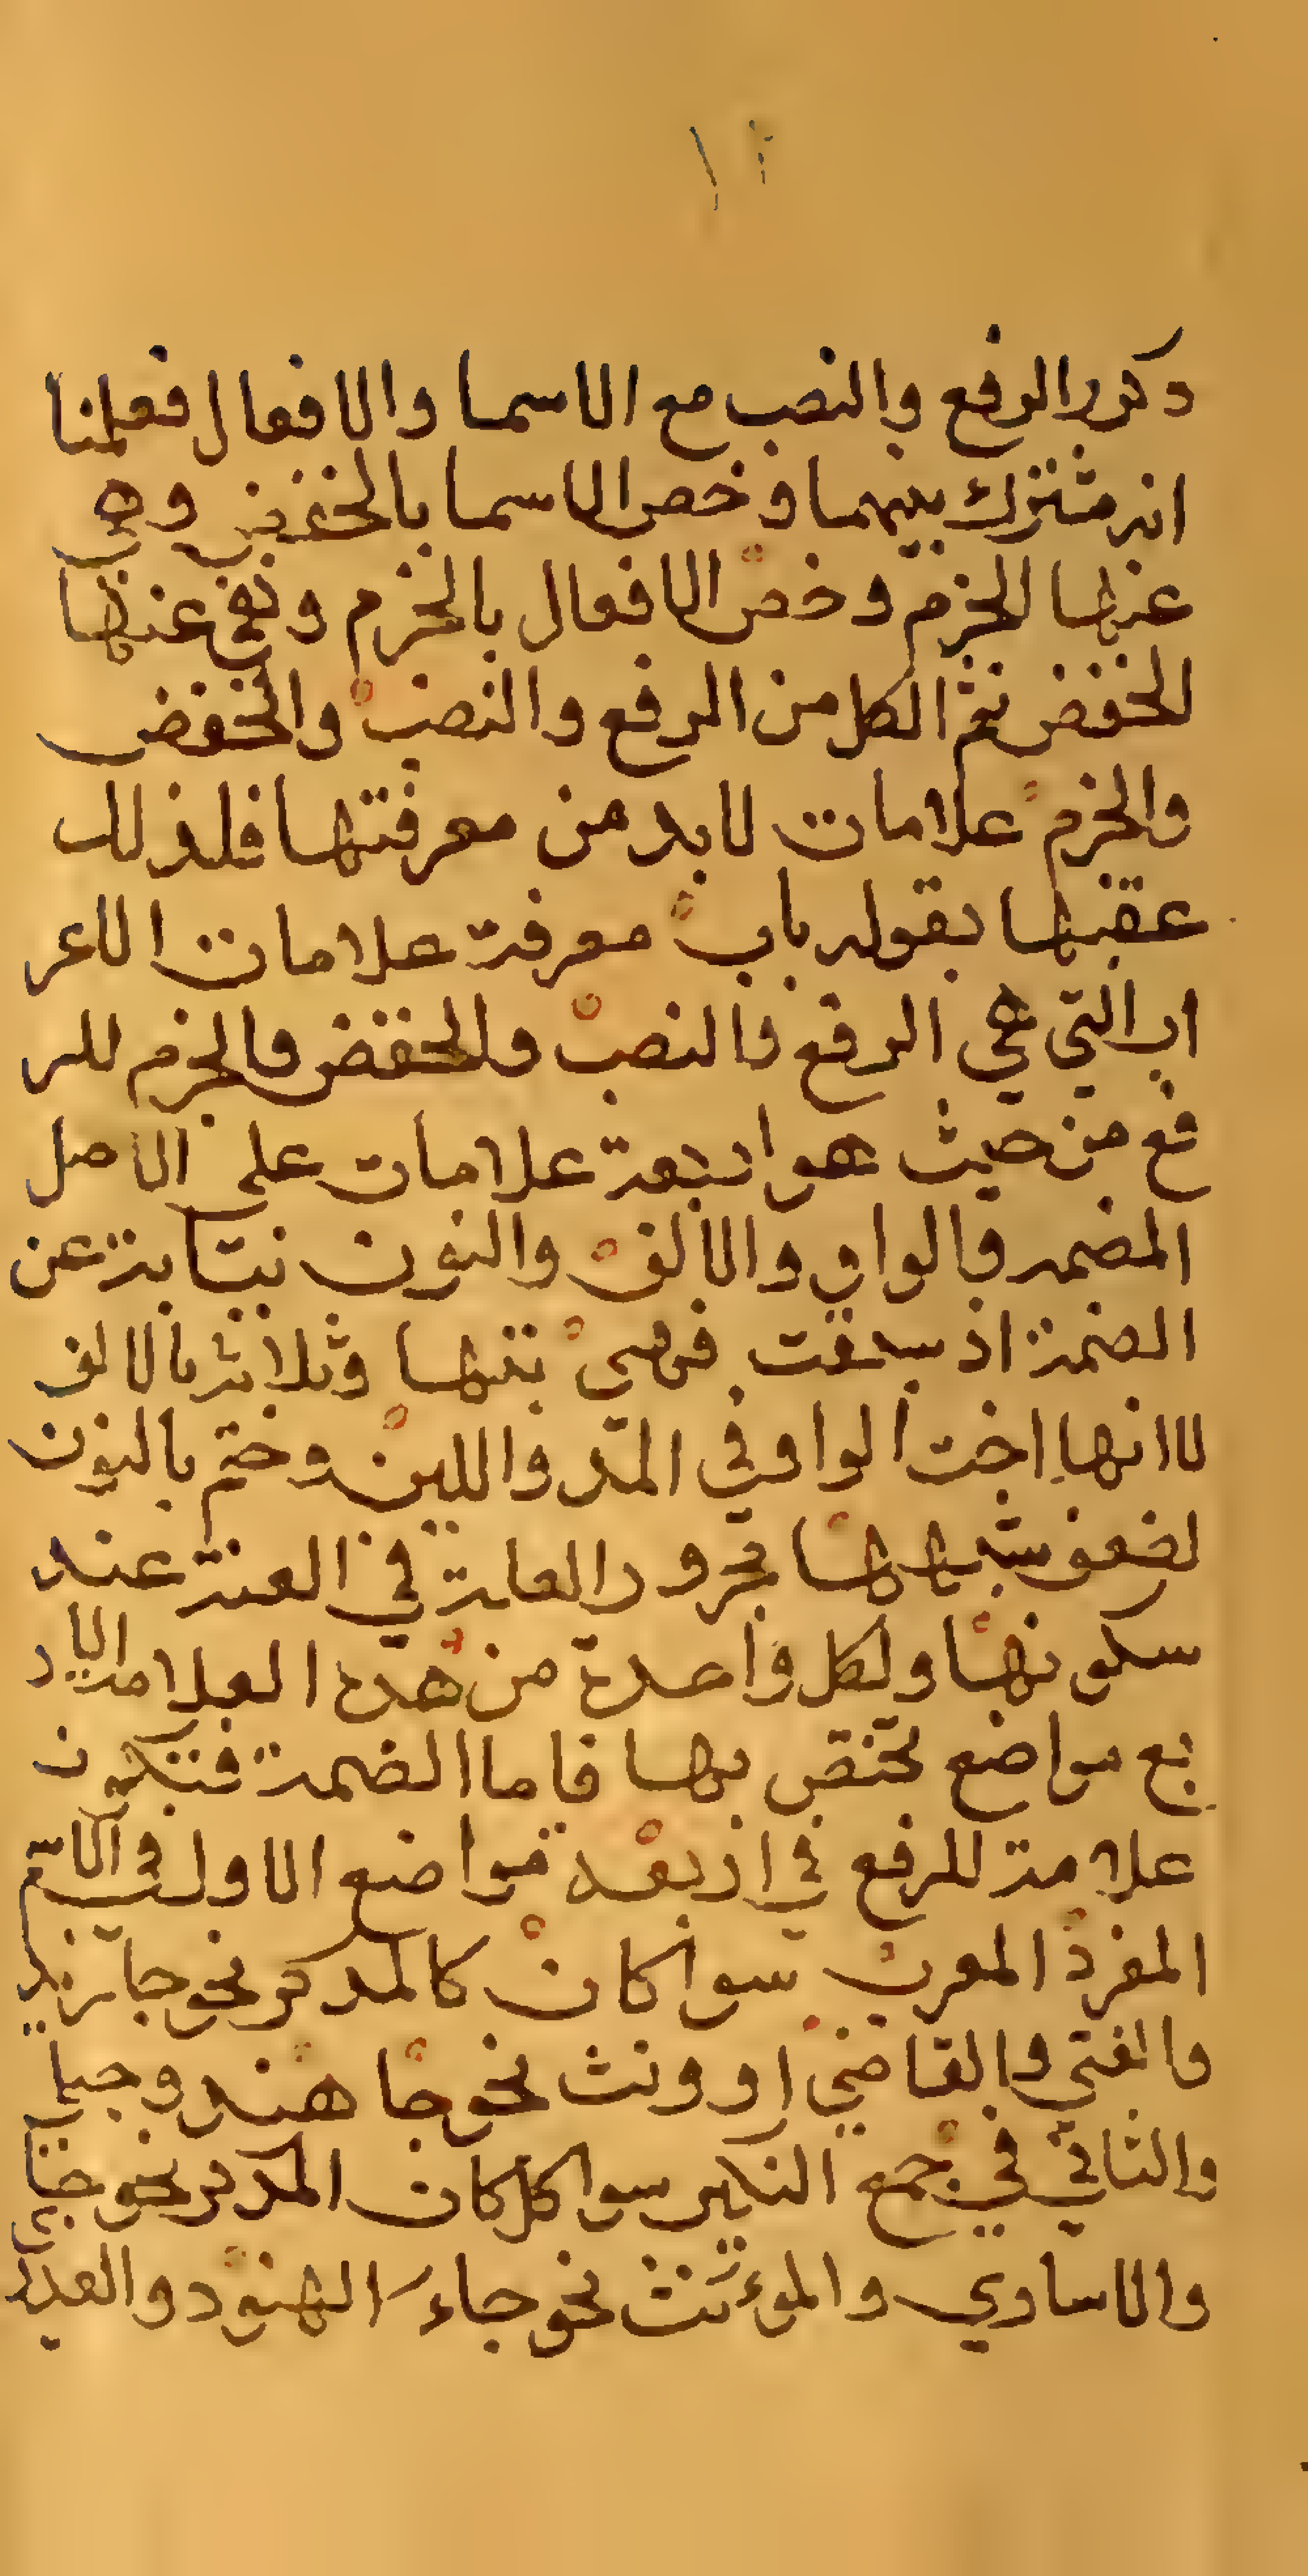 دكور الرفع والنصب مع الاسما والافعال فعلمنا
انه مشترك بينهما وخص الاسما بالخفض
عنها الجزم وخص الافعال بالجزم ونفي عنها
الخفض ثم الكل من الرفع والنصب والخفض
والجزم علامات لابد من معرفتها فلذلك
عقبها بقوله باب معرفة علامات الاعر
اب التي هي الرفع والنصب والخفض والجزم للر
فع من حيث هو اربعة علامات على الاصل
المضمه والواو والالف والنون نيابة عن
الضمة اذ سبقت فهي بتها وثلاثة بالالف
لاانها اخت الواو في المد واللين وختم بالنون
لضعف شبهها بحرور العلة في الغنة عند
سكونها ولكل واحدة من هده العلامة الار
بع مواضع تختص بها فاما الضمة فتكون
علامة للرفع في اربعة مواضع الاول في الاسم
المفرد المعرب سوا كان كالمدكر نحو جا زيد
والفتي والقاضي او ونث نحو جا هند وحبلي
والثاني في جمع التكير سوا كل كان المدكر نحو جا
والاساري والموءنث نحو جاء الهنود والعدا